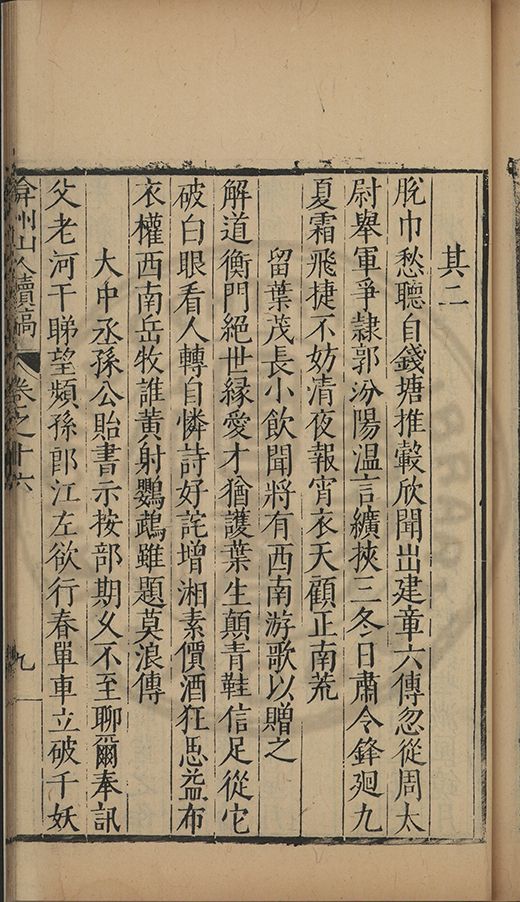 其二
脫巾愁聽自錢塘推轂欣聞出建章六傳忽從周太
尉舉軍爭隷郭汾陽温言纊挾三冬日肅令鋒廻九
夏霜飛捷不妨清夜報宵衣天顧正南荒
留葉茂長小飲聞將有西南游歌以贈之
解道衡門絕世緣愛才猶護葉生顛青鞋信足從它
破白眼看人轉自憐詩好詫增湘素價酒狂思益布
衣權西南岳牧誰黃射鸚鵡雖題莫浪傳
大中丞孫公貽書示按部期乆不至聊爾奉訊
父老河干睇望頻孫郎江左欲行春單車立破千妖
弇州山人續稿 卷之十六 九